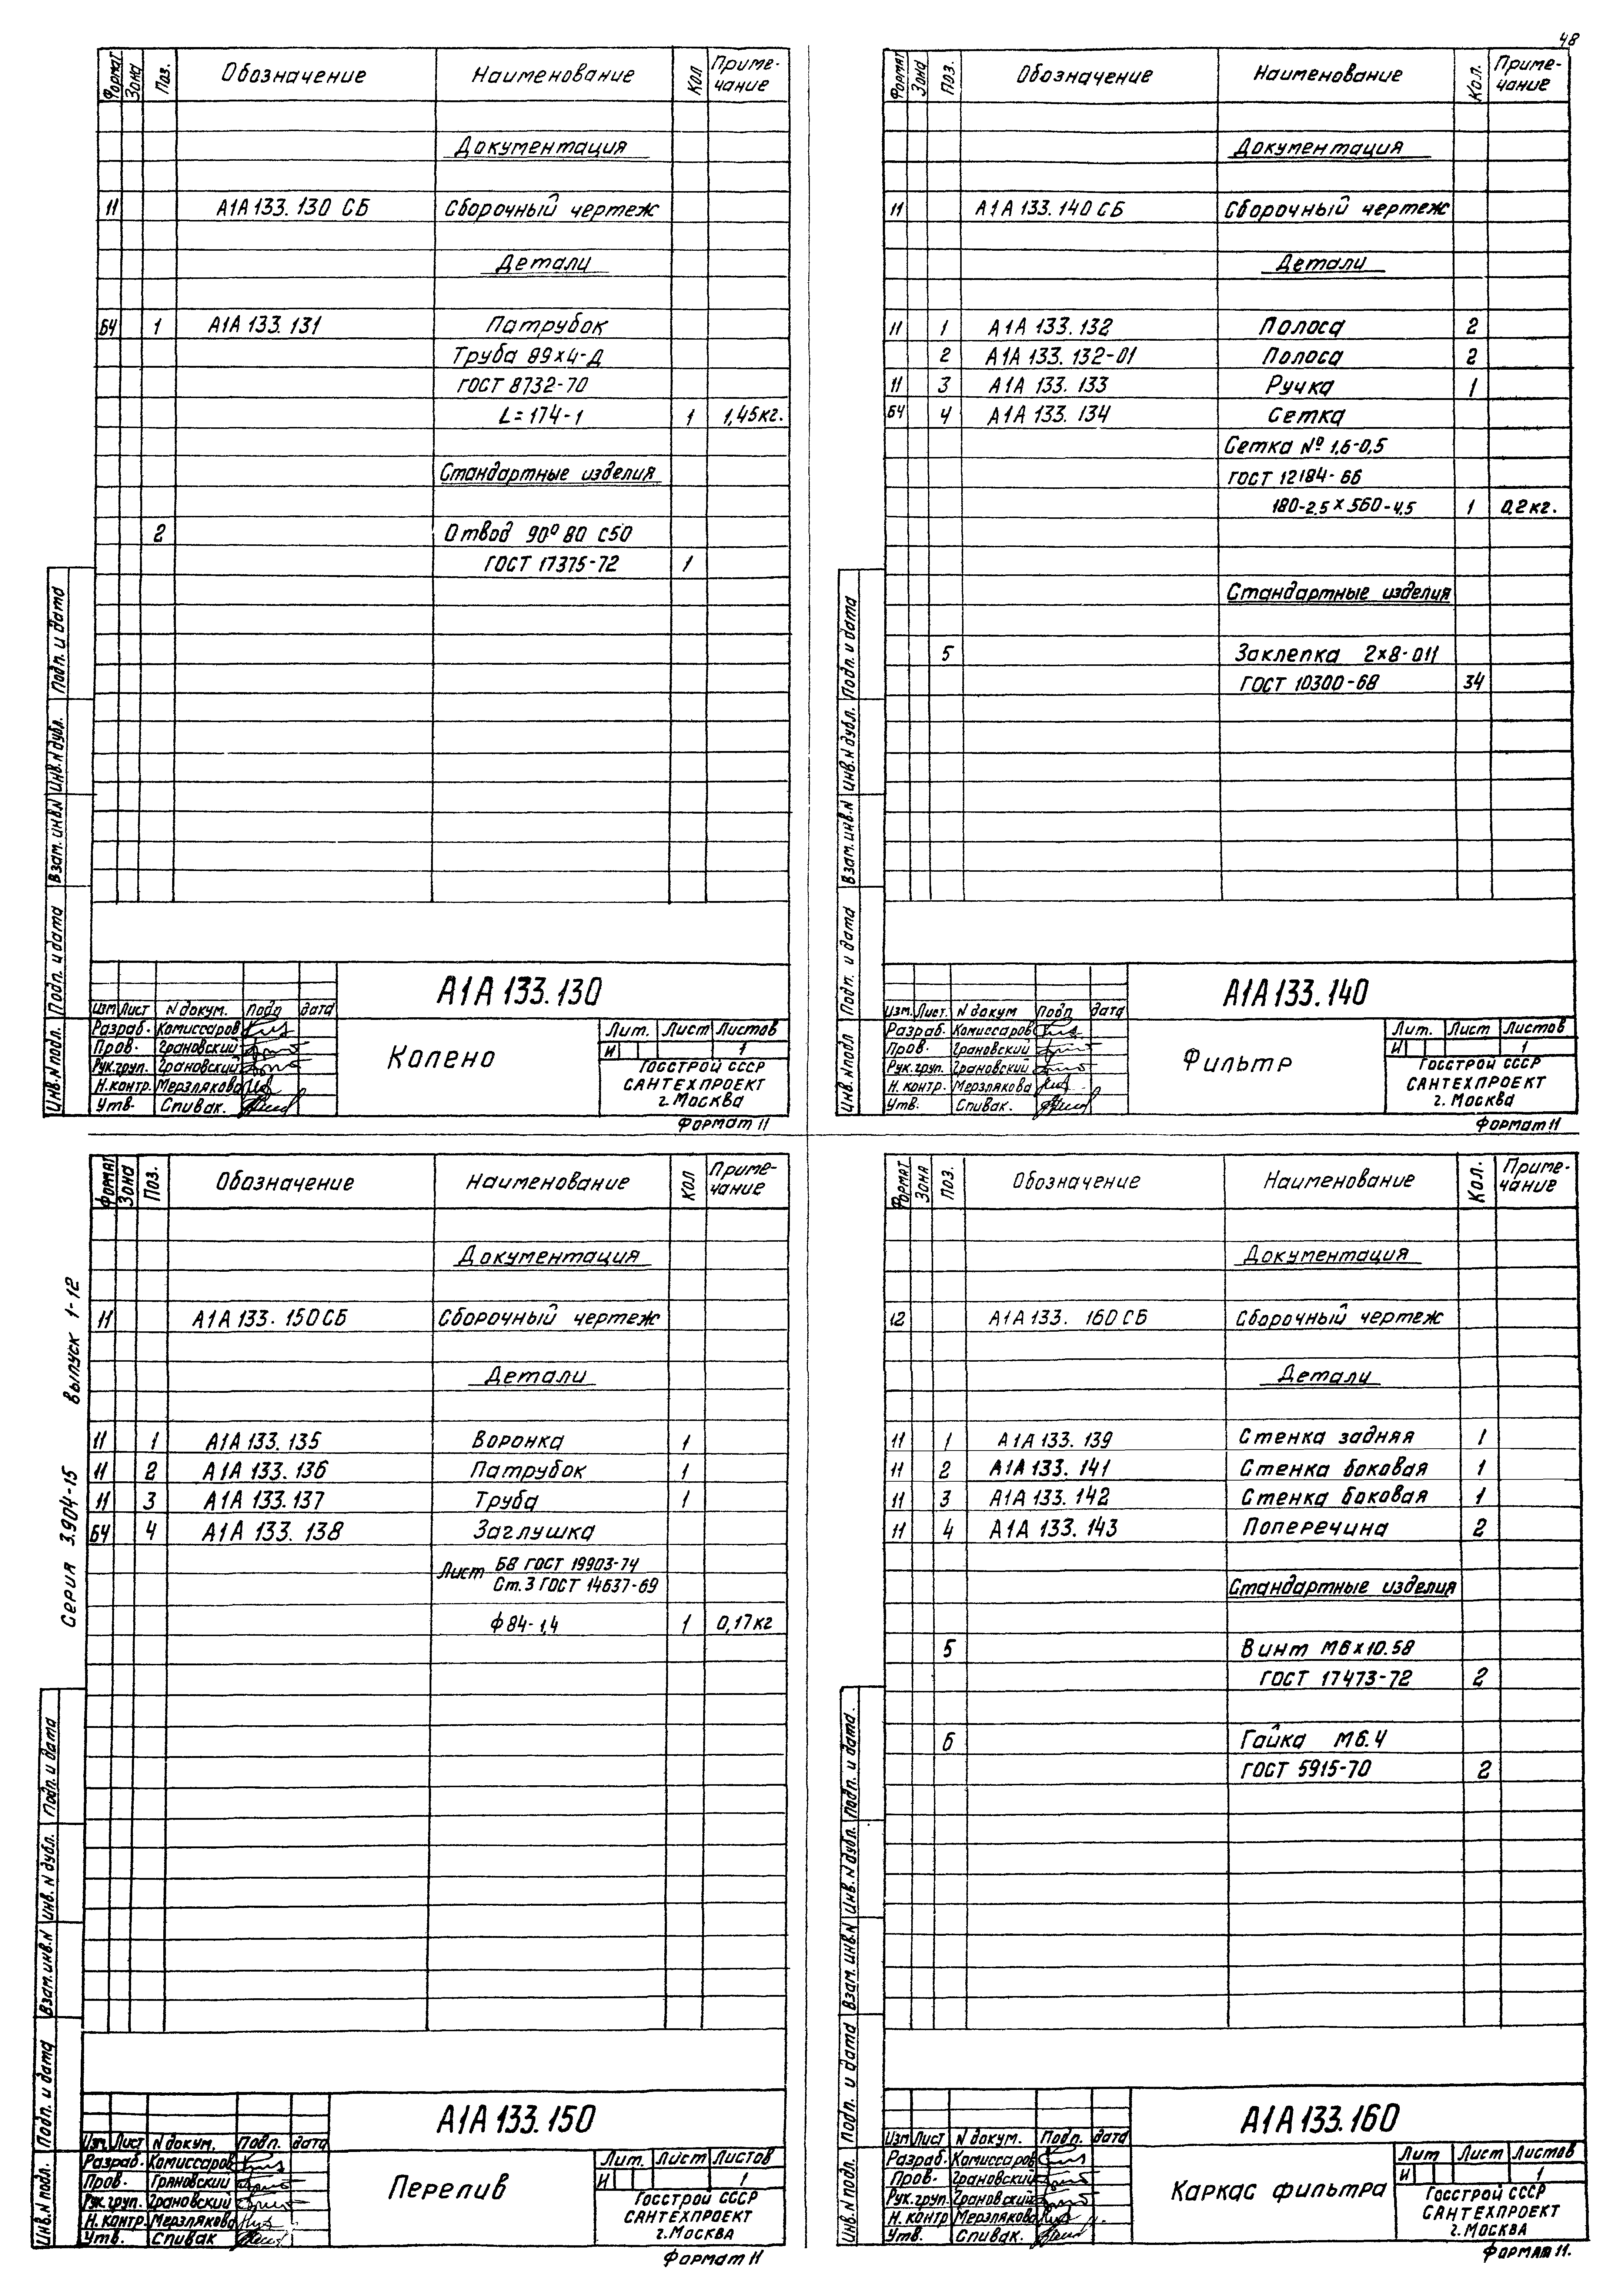 48
Формат Зона Поз. Обозначение Наименование Кол Приме-
чание
Документация
11 А1А 133.130 СБ Сборочный чертеж
Детали
БЧ 1 А1А 133.131 Патрубок
Труба 89×4-Д
ГОСТ 8732-70
L=174-1 1 1,45кг.
Стандартные изделия
2 Отвод 90° 80 С50
ГОСТ 17375-72 1
Инв.N подл. Подп. и дата Взам.инв.N Инв.N дубл. Подп. и дата
А1А 133.130
Изм Лист N докум. Подп дата
Разраб. Комиссаров
Пров. Грановский
Рук.груп. Грановский
Н.контр. Мерзлякова
Утв. Спивак.
Колено
Лит. Лист Листов
И 1
Госстрой СССР
САНТЕХПРОЕКТ
г.Москва
Формат 11
Формат Зона Поз. Обозначение Наименование Кол. Приме-
чание
Документация
11 А1А 133.140 СБ Сборочный чертеж
Детали
11 1 А1А 133.132 Полоса 2
2 А1А 133.132-01 Полоса 2
11 3 А1А 133.133 Ручка 1
БЧ 4 А1А 133.134 Сетка
Сетка № 1,6-0,5
ГОСТ 12184-66
180-2,5 × 560-4,5 1 0,2кг.
Стандартные изделия
5 Заклепка 2×8-011
ГОСТ 10300-68 34
Инв.N подл Подп. и дата Взам.инв.N Инв.N дубл. Подп. и дата
А1А 133.140
Изм. Лист. N докум Подп дата
Разраб. Комиссаров
Пров. Грановский
Рук.груп. Грановский
Н.контр. Мерзлякова
Утв. Спивак.
Фильтр
Лит. Лист Листов
И 1
Госстрой СССР
САНТЕХПРОЕКТ
г. Москва
Формат 11
Серия 3.904-15 Выпуск 1-12
Формат Зона Поз. Обозначение Наименование Кол Приме-
чание
Документация
11 А1А 133.150СБ Сборочный чертеж
Детали
11 1 А1А 133.135 Воронка 1
11 2 А1А 133.136 Патрубок 1
11 3 А1А 133.137 Труба 1
БЧ 4 А1А 133.138 Заглушка
Лист Б8 ГОСТ 19903-74
Ст.3 ГОСТ 14637-69
ф84-1,4 1 0,17кг
Инв.N подл. Подп. и дата Взам.инв.N Инв. N дубл. Подп. и дата
А1А 133.150
Изм Лист N докум. Подп. дата
Разраб. Комиссаров
Пров. Грановский
Рук.груп. Грановский
Н.контр Мерзлякова
Утв. Спивак
Перелив
Лит. Лист Листов
И 1
Госстрой СССР
САНТЕХПРОЕКТ
г.Москва
Формат 11
Формат Зона Поз. Обозначение Наименование Кол. Приме-
чание
Документация
12 А1А 133. 160 СБ Сборочный чертеж
Детали
11 1 А1А 133.139 Стенка задняя 1
11 2 А1А 133.141 Стенка боковая 1
11 3 А1А 133.142 Стенка боковая 1
11 4 А1А 133.143 Поперечина 2
Стандартные изделия
5 Винт М6×10.58
ГОСТ 17473-72 2
6 Гайка М6.4
ГОСТ 5915-70 2
Инв.N подл. Подп. и дата Взам.инв.N Инв.N дубл. Подп. и дата.
А1А 133.160
Изм Лист N докум. Подп. дата
Разраб. Комиссаров
Пров. Грановский
Рук.груп. Грановский
Н.контр Мерзлякова
Утв. Спивак.
Каркас фильтра
Лит Лист Листов
И 1
Госстрой СССР
САНТЕХПРОЕКТ
г.Москва
Формат 11.